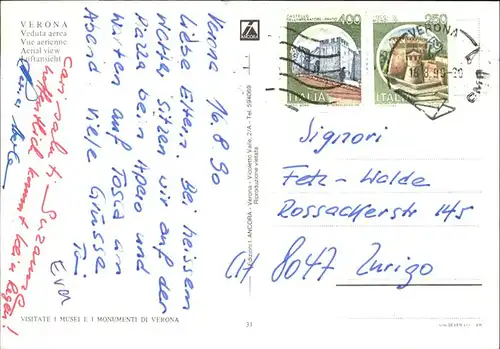 VERONA
Veduta aerea
Vue aérienne
Aerial view
Luftansicht
Verona 16.8.90
Liebe Eltern. Bei heissem
Wetter sitzen wir auf der
Piazza beim Apero und
warten auf Tosca am
Abend. Viele Grüsse
Eva
Cari saluti Suzanne
hoffentlich kommt kein Regen!
VISITATE I MUSEI E I MONUMENTI DI VERONA
31
ANCORA
ANCORA - Verona - Vicoletto Valle, 2/A - Tel. 594069
Riproduzione vietata
400
ITALIA
250
ITALIA
VERONA
16.8.90
Signori
Fetz-Walde
Rossackerstr 145
CH 8047 Zurigo